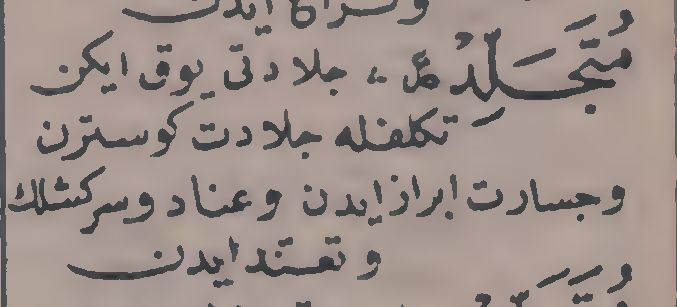 مُتَجَلِّدْ ع ،، جلادتی یوق ایکن
تکلفله جلادت کوسترن
وجسارت ابراز ایدن وعناد وسرکشلك
وتعند ایدن